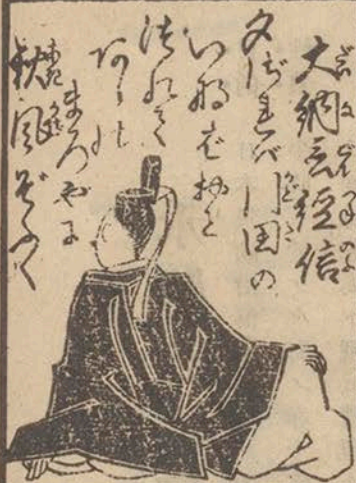 大納言経信
夕されば門田の
いなばおと
づれて
あしの
まろやに
秋風ぞふく